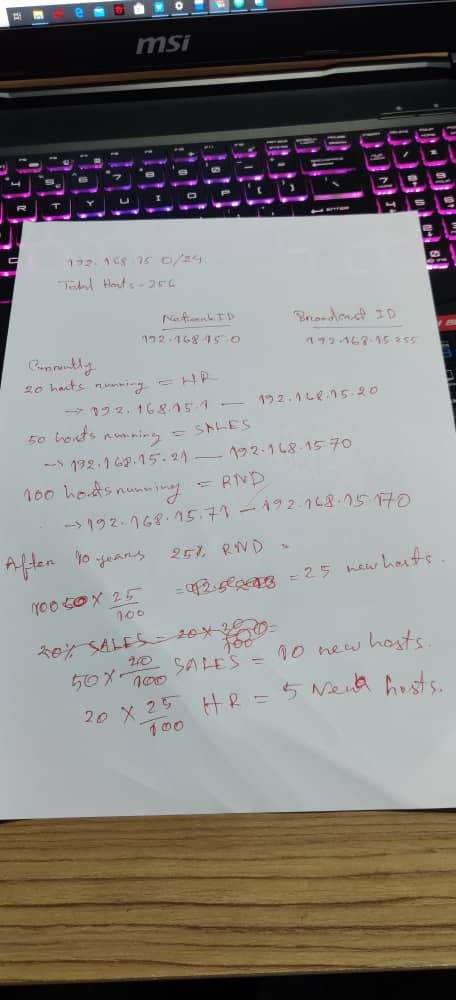 msi
192.168.15.0/24
Total Hosts - 256
Network ID Broadcast ID
192.168.15.0 192.168.15.255
Currently
20 hosts running = HR
→ 192.168.15.1 — 192.168.15.20
50 hosts running = SALES
→ 192.168.15.21 — 192.168.15.70
100 hosts running = RND
→ 192.168.15.71 — 192.168.15.170
After 10 years 25% RND =
100 × 25/100 = 25 new hosts.
20% SALES = 20 × 
50 × 20/100 SALES = 10 new hosts.
20 × 25/100 HR = 5 New hosts.